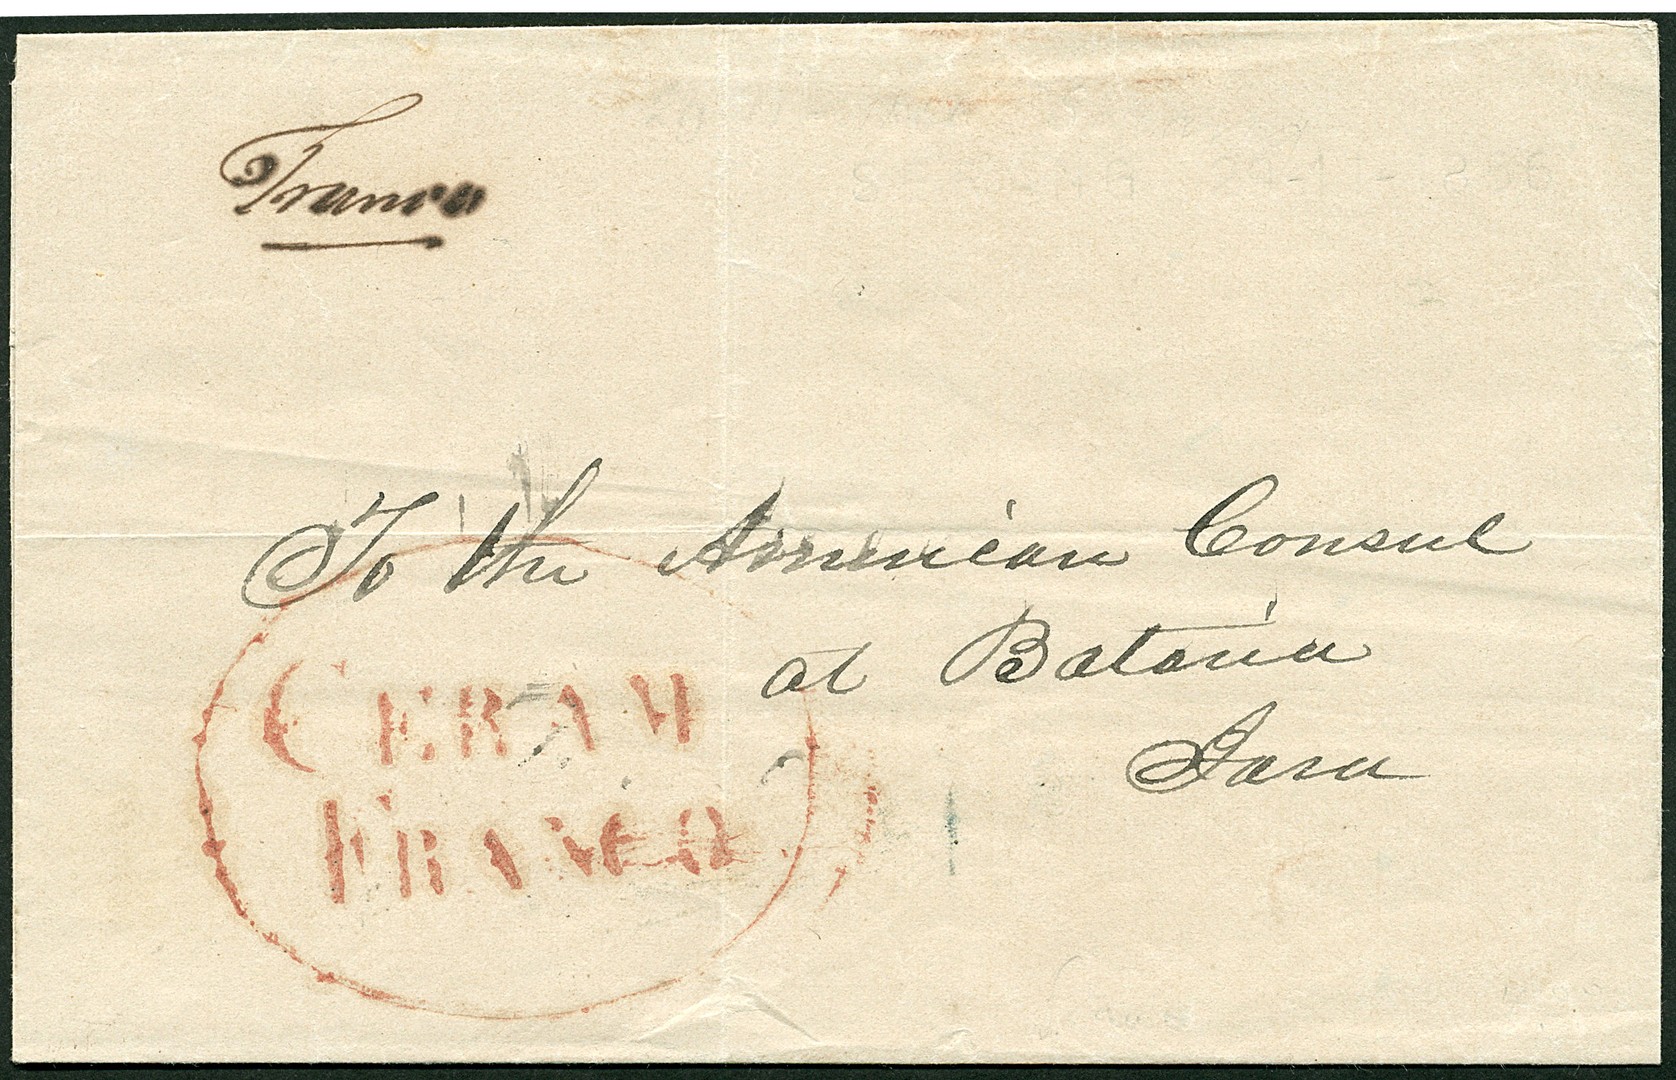 Franco
To the American Consul
at Batavia
Java
CERAM
FRANCO